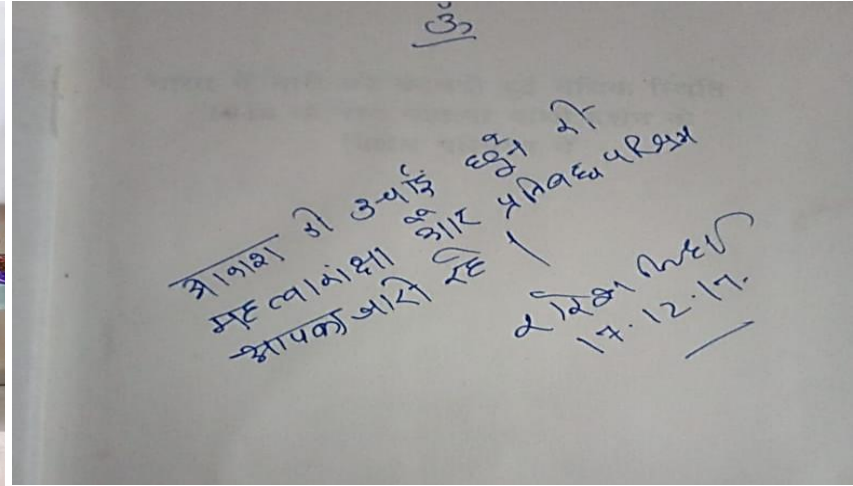 ॐ
आकाश की उचाई छूने की
महत्वाकांक्षा और प्रतिबध्ध परिश्रम
आपका जारी रहे ।
17.12.17.